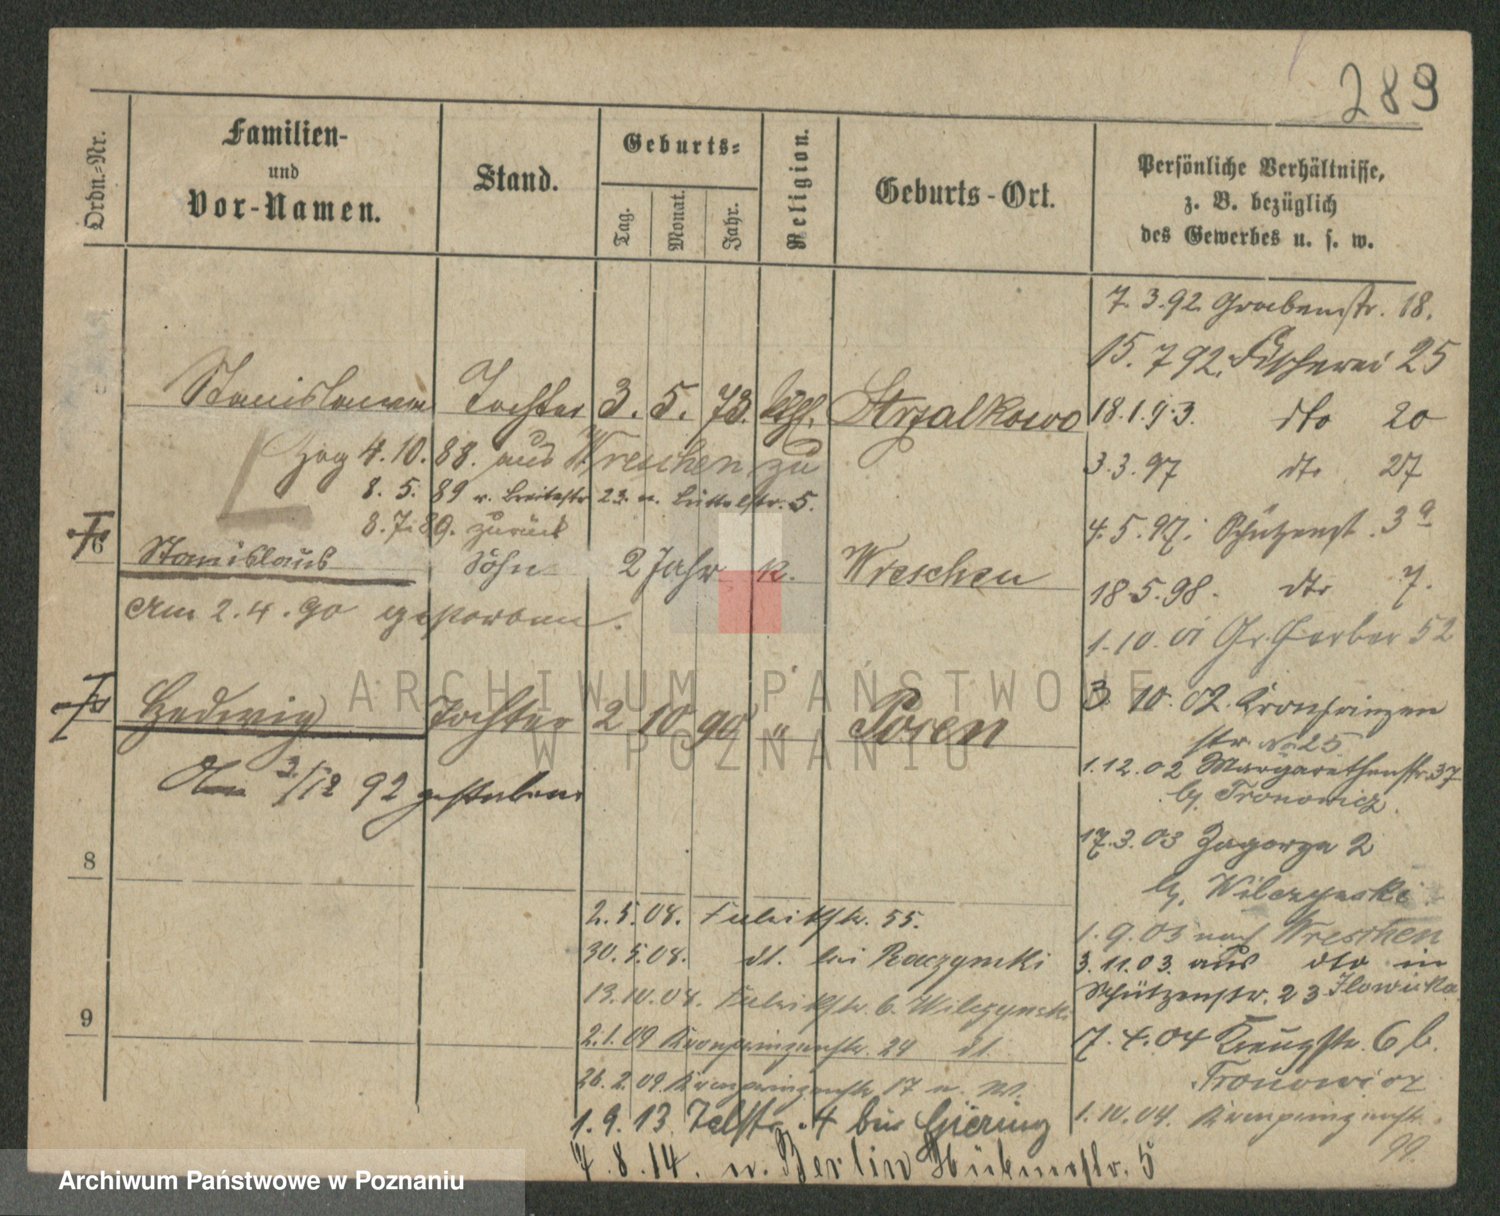 289
Ordn.-Nr.
Familien-
und
Vor-Namen.
Stand.
Geburts-
Tag.
Monat.
Jahr.
Religion.
Geburts-Ort.
Persönliche Verhältnisse,
z. B. bezüglich
des Gewerbes u. s. w.
7. 3. 92 Grabenstr. 18.
15. 7 92. Fischerei 25
Stanislawa Tochter 3. 5. 73. kth. Strzalkowo
18. 1. 93. dto 20
Zog 4. 10. 88. aus Wreschen zu
3. 3. 97 dto 27
8. 5. 89 v. Breitestr 23. n. Büttelstr. 5.
8. 7. 89. zurück
4. 5. 97. Schützenst. 3a
6 Stanislaus Sohn 2 Jahr k. Wreschen
18. 5. 98. dto 7.
Am 2. 4. 90 gestorben.
1. 10. 01 Gr. Gerber 52
Hedwig Tochter 2 10 90 " Posen
3. 10. 02. Kronprinzen
str No 25
1. 12. 02 Margarethenstr. 37
b. Tronowicz.
Am 3/12 92 gestorben
17. 3. 03 Zagorze 2
8
b. Wilczynski
2. 5. 08. Fabrikstr. 55.
1. 9. 03 nach Wreschen
30. 5. 08. dt. bei Raczynski
3. 11. 03. aus dto in
Schützenstr. 23 Ilowicka
13. 10. 08. Fabrikstr. 6. Wilczynski
9
2. 1. 09 Kronprinzenstr. 24 dt.
7. 4. 04 Kreuzstr. 6 b.
Tronowicz
26. 2. 09 Kronprinzenstr 17 n. W.
1. 10. 04. Kronprinzenstr.
99.
1. 9. 13 4 bei Giering
7. 8. 14. n. Berlin Hübnerstr. 5
ARCHIWUM PAŃSTWOWE
W POZNANIU
Archiwum Państwowe w Poznaniu